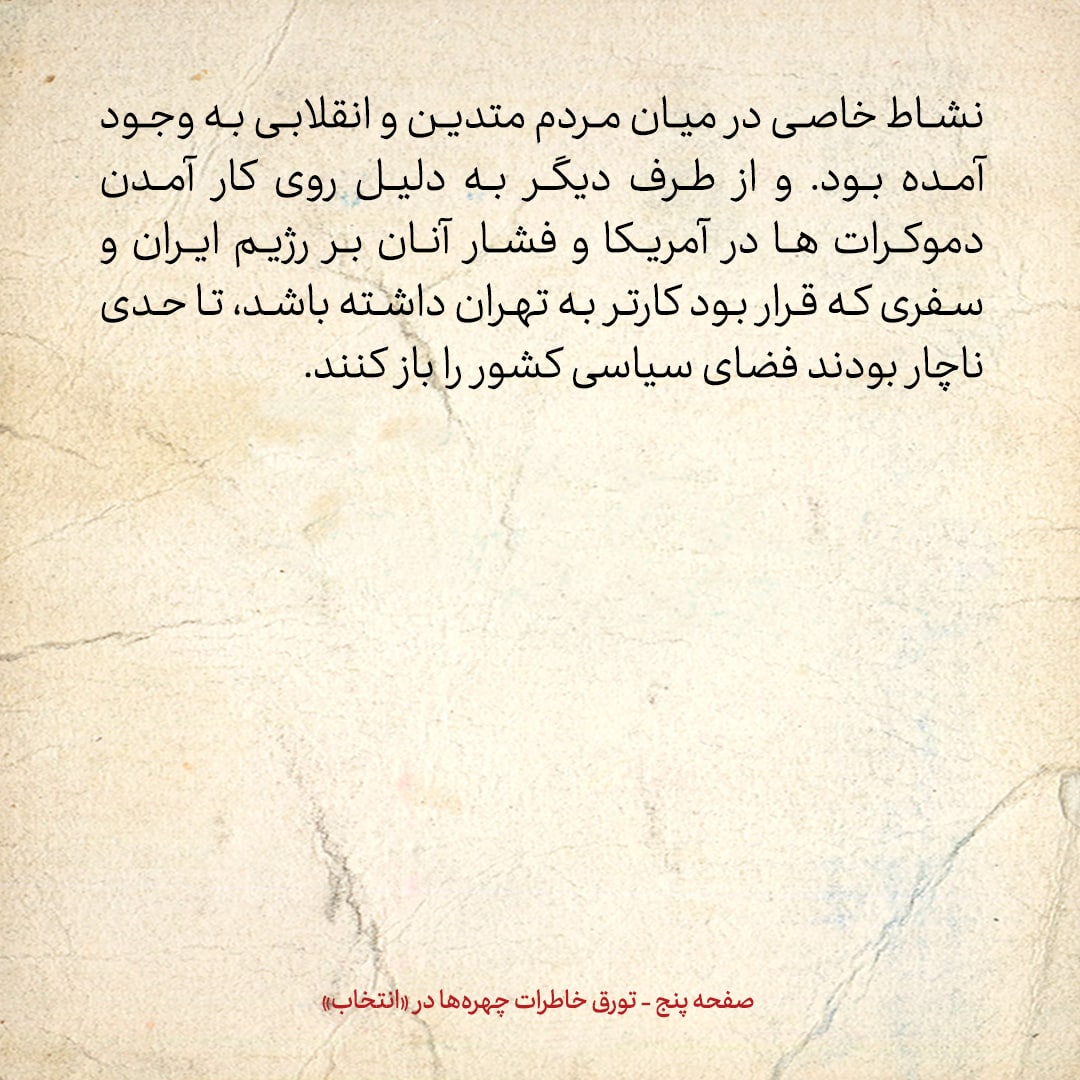 نشاط خاصی در میان مردم متدین و انقلابی به وجود
آمده بود. و از طرف دیگر به دلیل روی کار آمدن
دموکرات ها در آمریکا و فشار آنان بر رژیم ایران و
سفری که قرار بود کارتر به تهران داشته باشد، تا حدی
ناچار بودند فضای سیاسی کشور را باز کنند.
صفحه پنج - تورق خاطرات چهره‌ها در «انتخاب»